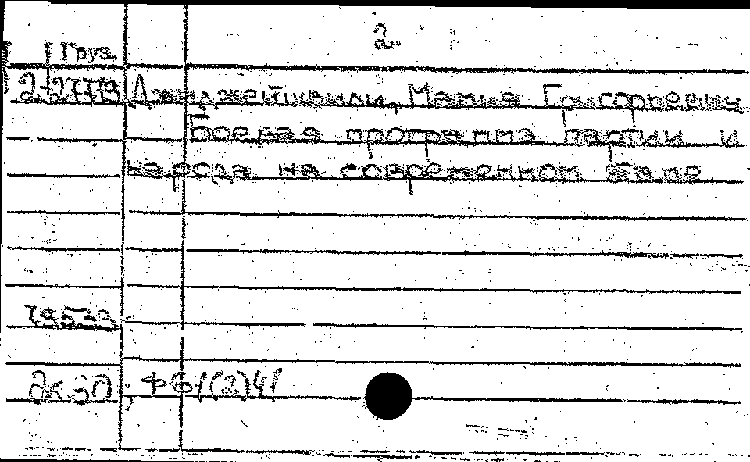 2.
Груз.
2-27713 Джинджейшвили, Мания Григорьевич
Боевая программа партии и
народа на современном этапе
79529
ЗК30; ФБ1(2)41